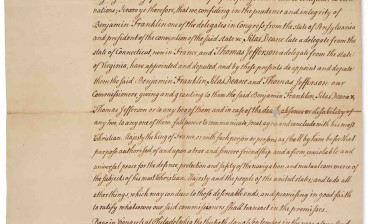 nations, Know ye therefore, that we confiding in the prudence and integrity of
Benjamin Franklin one of the delegates in Congress from the state of Pensylvania
and president of the convention of the said state &c. Silas Deane late a delegate from the
state of Connecticut, now in France, and Thomas Jefferson a delegate from the state
of Virginia, have appointed and deputed, and by these presents do appoint and depute
them the said Benjamin Franklin, Silas Deane and Thomas Jefferson our
Commissioners, giving and granting to them the said Benjamin Franklin, Silas Deane &
Thomas Jefferson or to any two of them, and in case of the death, absence or disability of
any two, to any one of them, full power to communicate, treat, agree and conclude with his most
Christian Majesty the king of France, or with such person or persons as shall by him be for that
purpose authorised, of and upon a true and sincere friendship, and a firm, inviolable and
universal peace for the defence, protection and safety of the navigation and mutual commerce of
the subjects of his most Christian Majesty and the people of the united states, and to do all
other things, which may conduce to those desireable ends, and promising in good faith
to ratify whatsoever our said commissioners shall transact in the premises.
Done in Congress at Philadelphia the